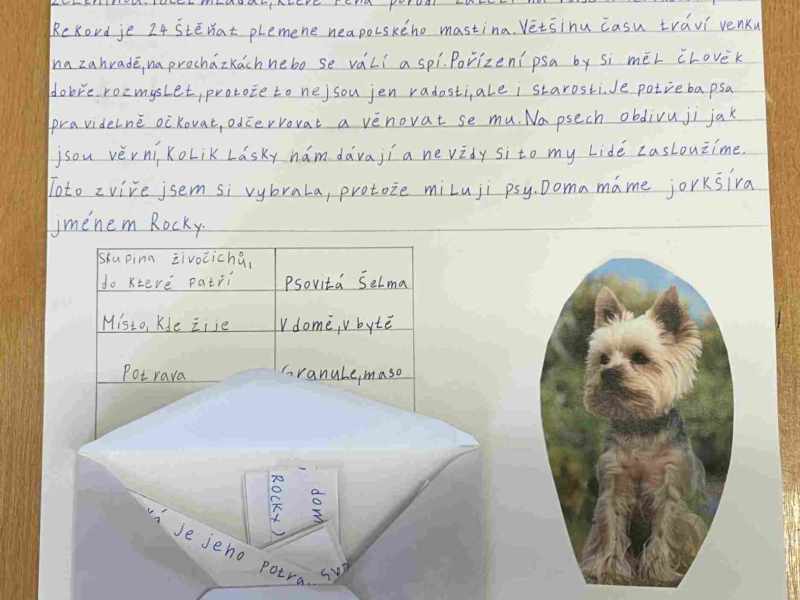 Rekord je 24 štěňat plemene neapolského mastina. Většinu času tráví venku
na zahradě, na procházkách nebo se válí a spí. Pořízení psa by si měl člověk
dobře rozmyslet, protože to nejsou jen radosti, ale i starosti. Je potřeba psa
pravidelně očkovat, odčervovat a věnovat se mu. Na psech obdivuji jak
jsou věrní, kolik lásky nám dávají a ne vždy si to my lidé zasloužíme.
Toto zvíře jsem si vybrala, protože miluji psy. Doma máme jorkšíra
jménem Rocky.
Skupina živočichů,
do které patří
Psovitá šelma
Místo, kde žije
V domě, v bytě
Potrava
Granule, maso
dom
Rocky)
je jeho potra